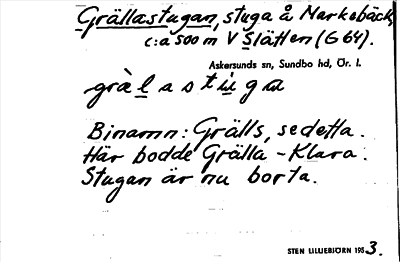 Grällastugan, stuga å Markebäck,
c:a 500 m V Slätten (G 64).
Askersunds sn, Sundbo hd, Ör. l.
gràlastu̇ga
Binamn: Grälls, se detta.
Här bodde Grälla-Klara.
Stugan är nu borta.
STEN LILLIEBJÖRN 1953.